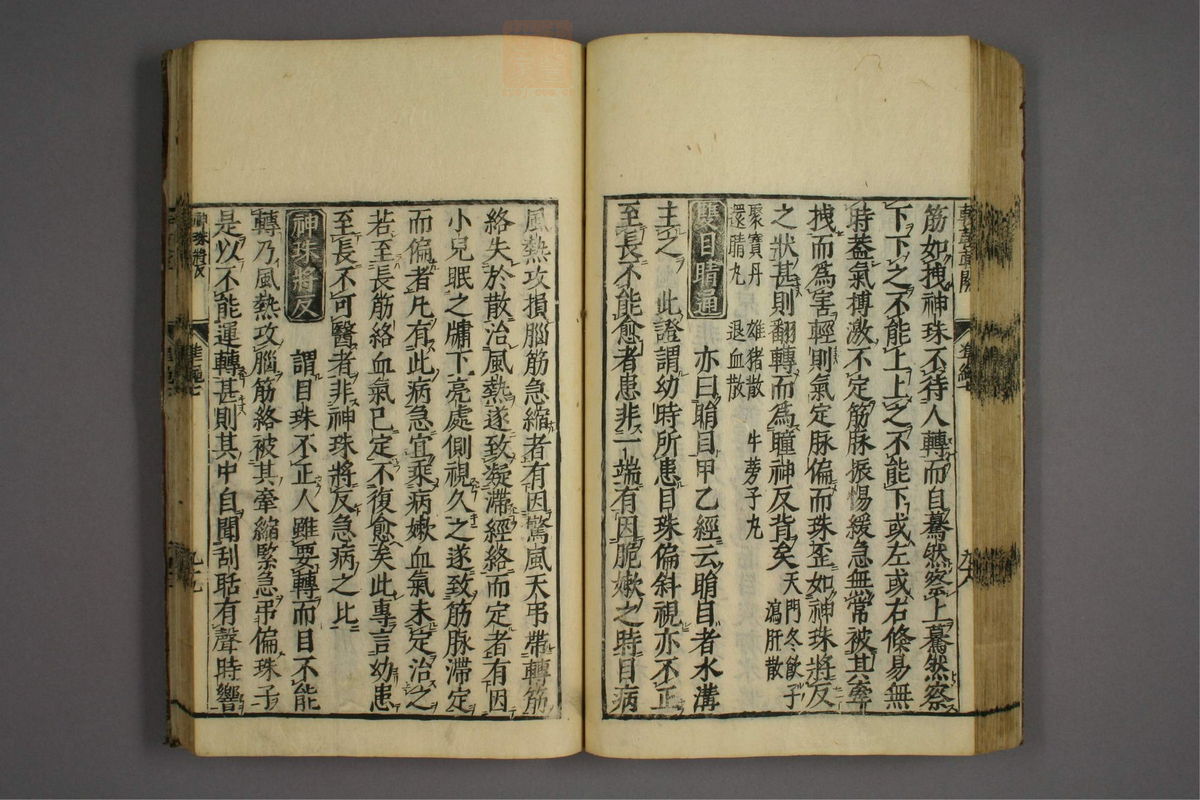 筋如拽神珠不待人轉而自驀然察上驀然察
下下之不能上上之不能下或左或右倏易無
時葢氣搏激不定筋脉振惕緩急無常被其牽
拽而爲害輕則氣定脉偏而珠歪如神珠將反
之狀甚則翻轉而爲瞳神反背矣天門冬飲子
瀉肝散
聚寶丹 雄猪散 牛蒡子丸
還睛丸 退血散
雙目睛通
亦曰睊目甲乙經云睊目者水溝
主之 此證謂幼時所患目珠偏斜視亦不正
至長不能愈者患非一端有因脆嫩之時目病
風熱攻損腦筋急縮者有因驚風天弔帶轉筋
絡失於散治風熱遂致凝滯經絡而定者有因
小兒眠之牗下亮處側視久之遂致筋脉滯定
而偏者凡有此病急宜乘病嫰血氣未定治之
若至長筋絡血氣已定不復愈矣此專言幼患
至長不可醫者非神珠將反急病之比
神珠將反
謂目珠不正人雖要轉而目不能
轉乃風熱攻腦筋絡被其牽縮緊急弔偏珠子
是以不能運轉甚則其中自聞刮聒有聲時響